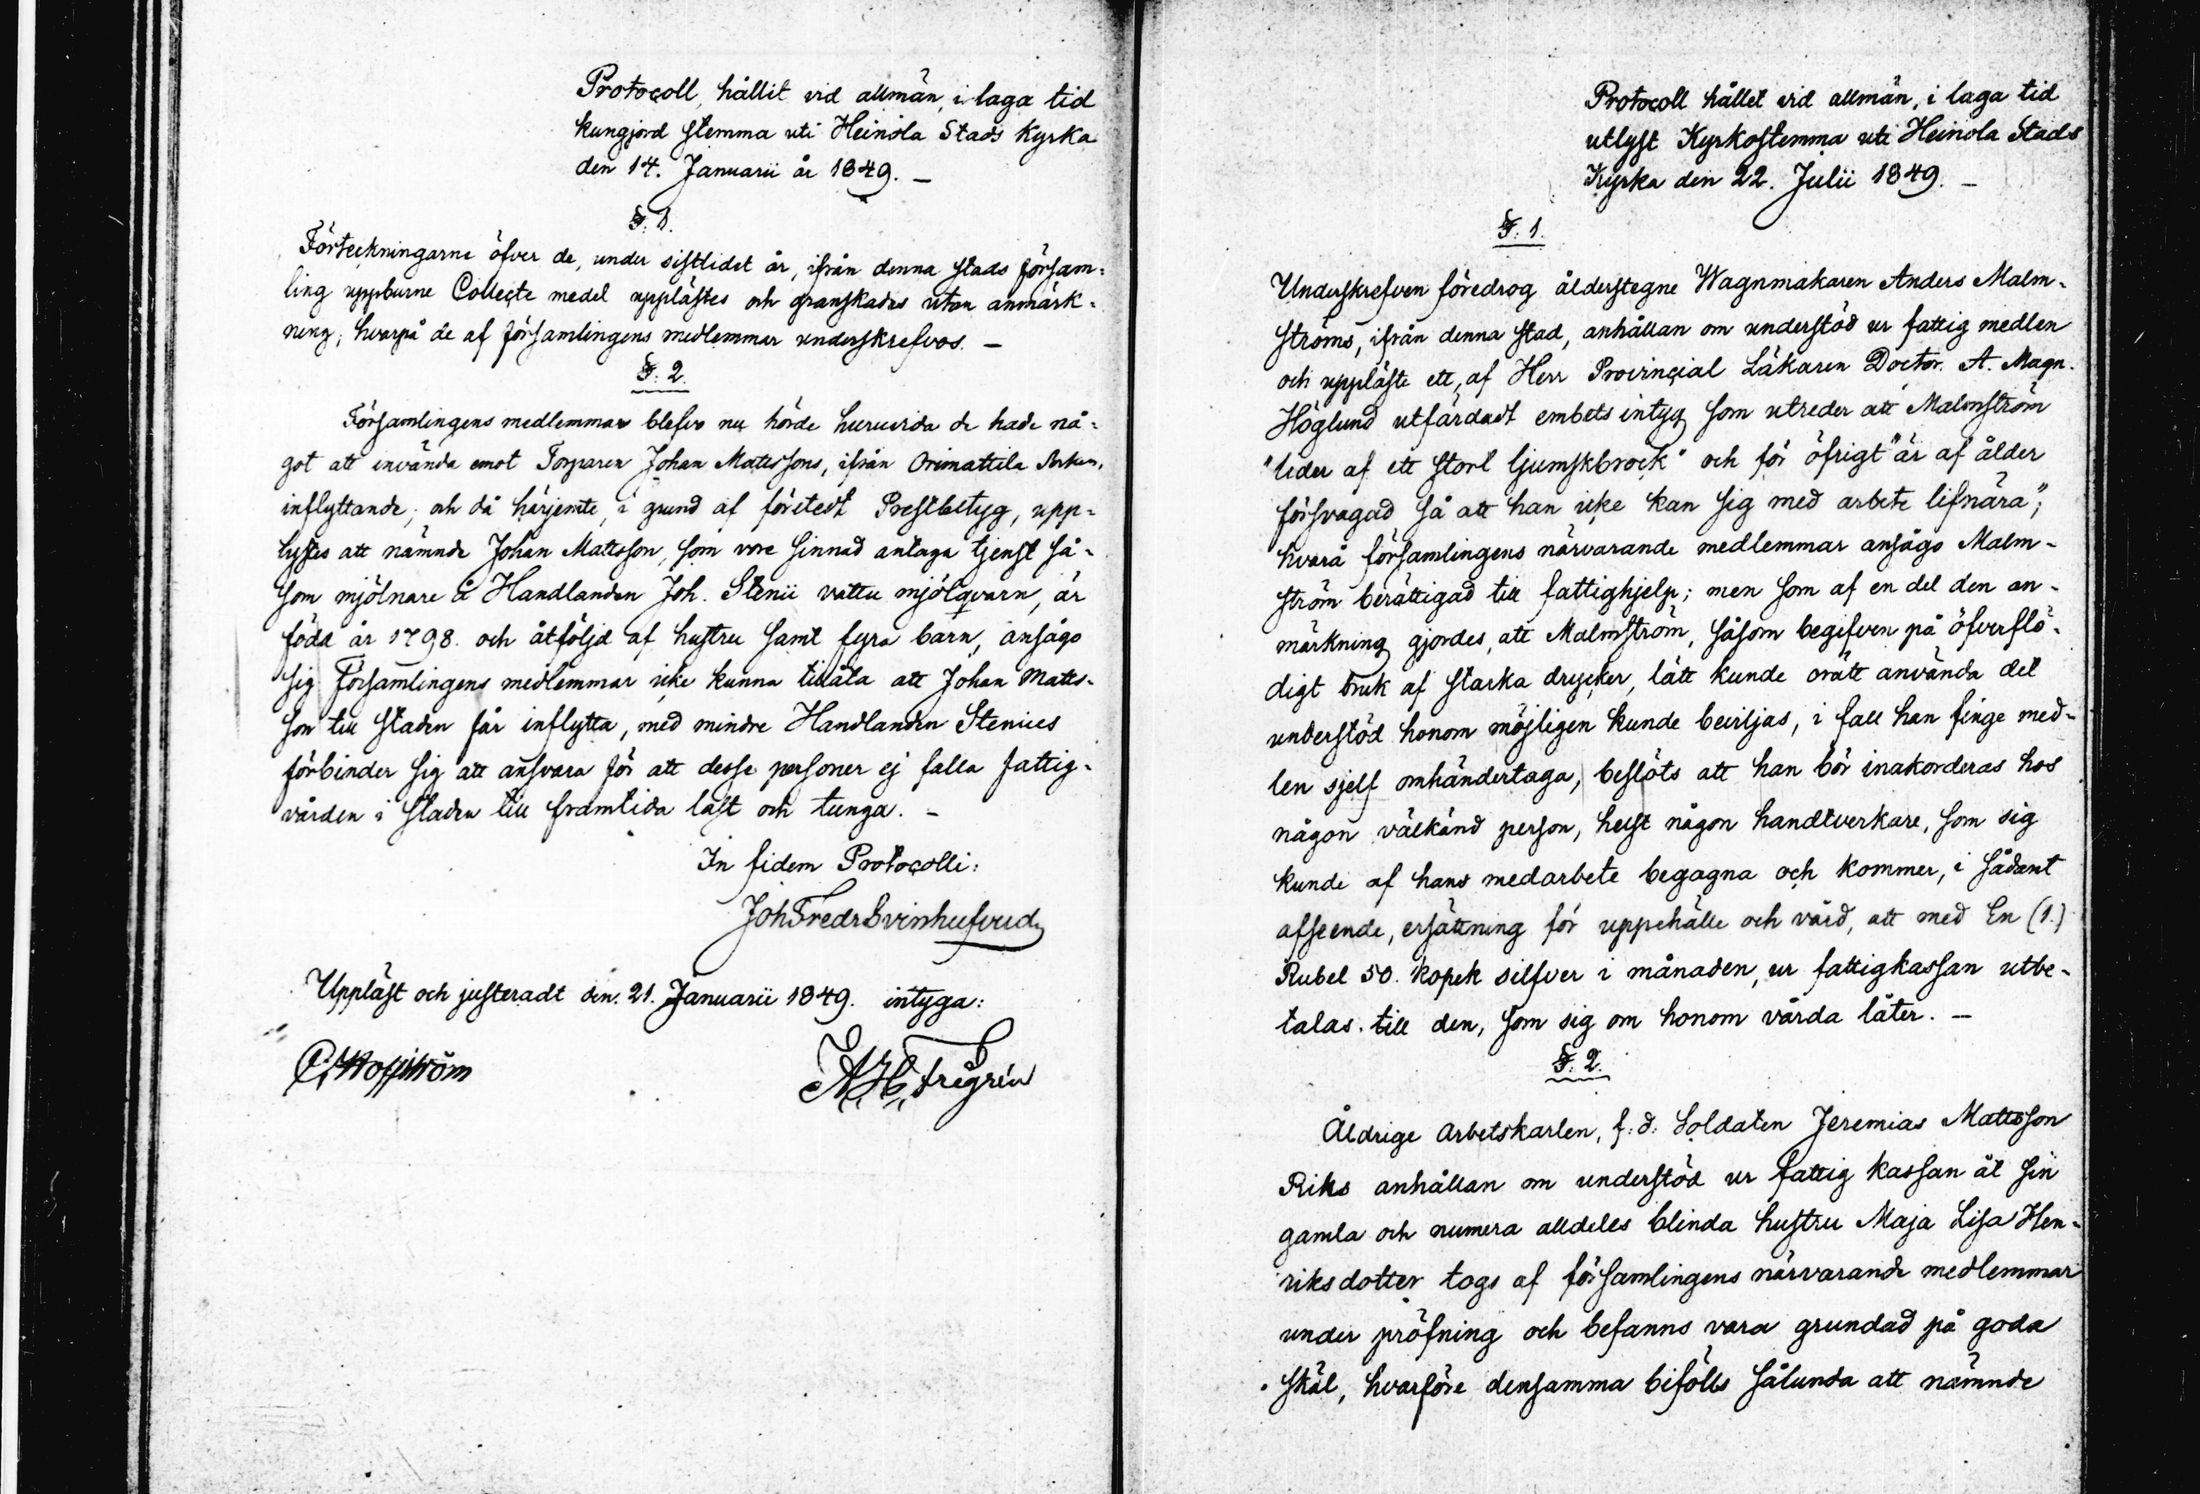 Protocoll, hållit vid allmän, i laga tid
kungjord stemma uti Heinola Stads Kyrka
den 14. Januarii år 1849. –
§. 1.
Förteckningarne öfver de, under sistlidet år, ifrån denna stads försam=
ling uppburne Collecte medel upplästes och granskades utan anmärk=
ning; hvarpå de af församlingens medlemmar underskrefvos. –
§. 2.
Församlingens medlemmar blefvo nu hörde huruvida de hade nå=
got att invända emot Torparen Johan Mattssons, ifrån Orimattila Sokn,
inflyttande; och då härjemte, i grund af företedt Prestbetyg, upp=
lystes att nämnde Johan Mattsson, som vore sinnad antaga tjenst så=
som mjölnare å Handlanden Joh. Stenii vattu mjölqvarn, är
född år 1798. och åtföljd af hustru samt fyra barn, ansågo
sig Församlingens medlemmar icke kunna tillåta att Johan Matts=
son till staden får inflytta, med mindre Handlanden Stenius
förbinder sig att ansvara för att desse personer ej falla fattig=
vården i staden till framtida last och tunga. –
In fidem Protocolli:
Joh Fredr Svinhufvud
Uppläst och justeradt den 21. Januarii 1849. intyga:
Protocoll hållet vid allmän, i laga tid
utlyst Kyrkostemma uti Heinola Stads
Kyrka den 22. Julii 1849. –
§. 1.
Underskrefven föredrog ålderstegne Wagnmakaren Anders Malm=
ströms, ifrån denna stad, anhållan om understöd ur fattig medlen
och uppläste ett, af Herr Provincial Läkaren Doctor A. Magn.
Höglund utfärdadt embets intyg som utreder att Malmström
"lider af ett stort ljumskbrock" och för öfrigt "är af ålder
försvagad så att han icke kan sig med arbete lifnära";
hvarå församlingens närvarande medlemmar ansågo Malm=
ström berättigad till fattighjelp; men som af en del den an=
märkning gjordes, att Malmström, såsom begifven på öfverflö=
digt bruk af starka drycker, lätt kunde orätt använda det
understöd honom möjligen kunde beviljas, i fall han finge med=
len sjelf omhändertaga, beslöts att han bör inakorderas hos
någon välkänd person, helst någon handtverkare, som sig
kunde af hans medarbete begagna och kommer, i sådant
afseende, ersättning för uppehälle och vård, att med En (1.)
Rubel 50. kopek silfver i månaden, ur fattigkassan utbe=
talas till den, som sig om honom vårda låter. –
§. 2.
Åldrige arbetskarlen, f: d: Soldaten Jeremias Mattsson
Riks anhållan om understöd ur fattig kassan åt sin
gamla och numera alldeles blinda hustru Maja Lisa Hen=
riksdotter togs af församlingens närvarande medlemmar
under pröfning och befanns vara grundad på goda
skäl, hvarföre densamma bifölls sålunda att nämnde